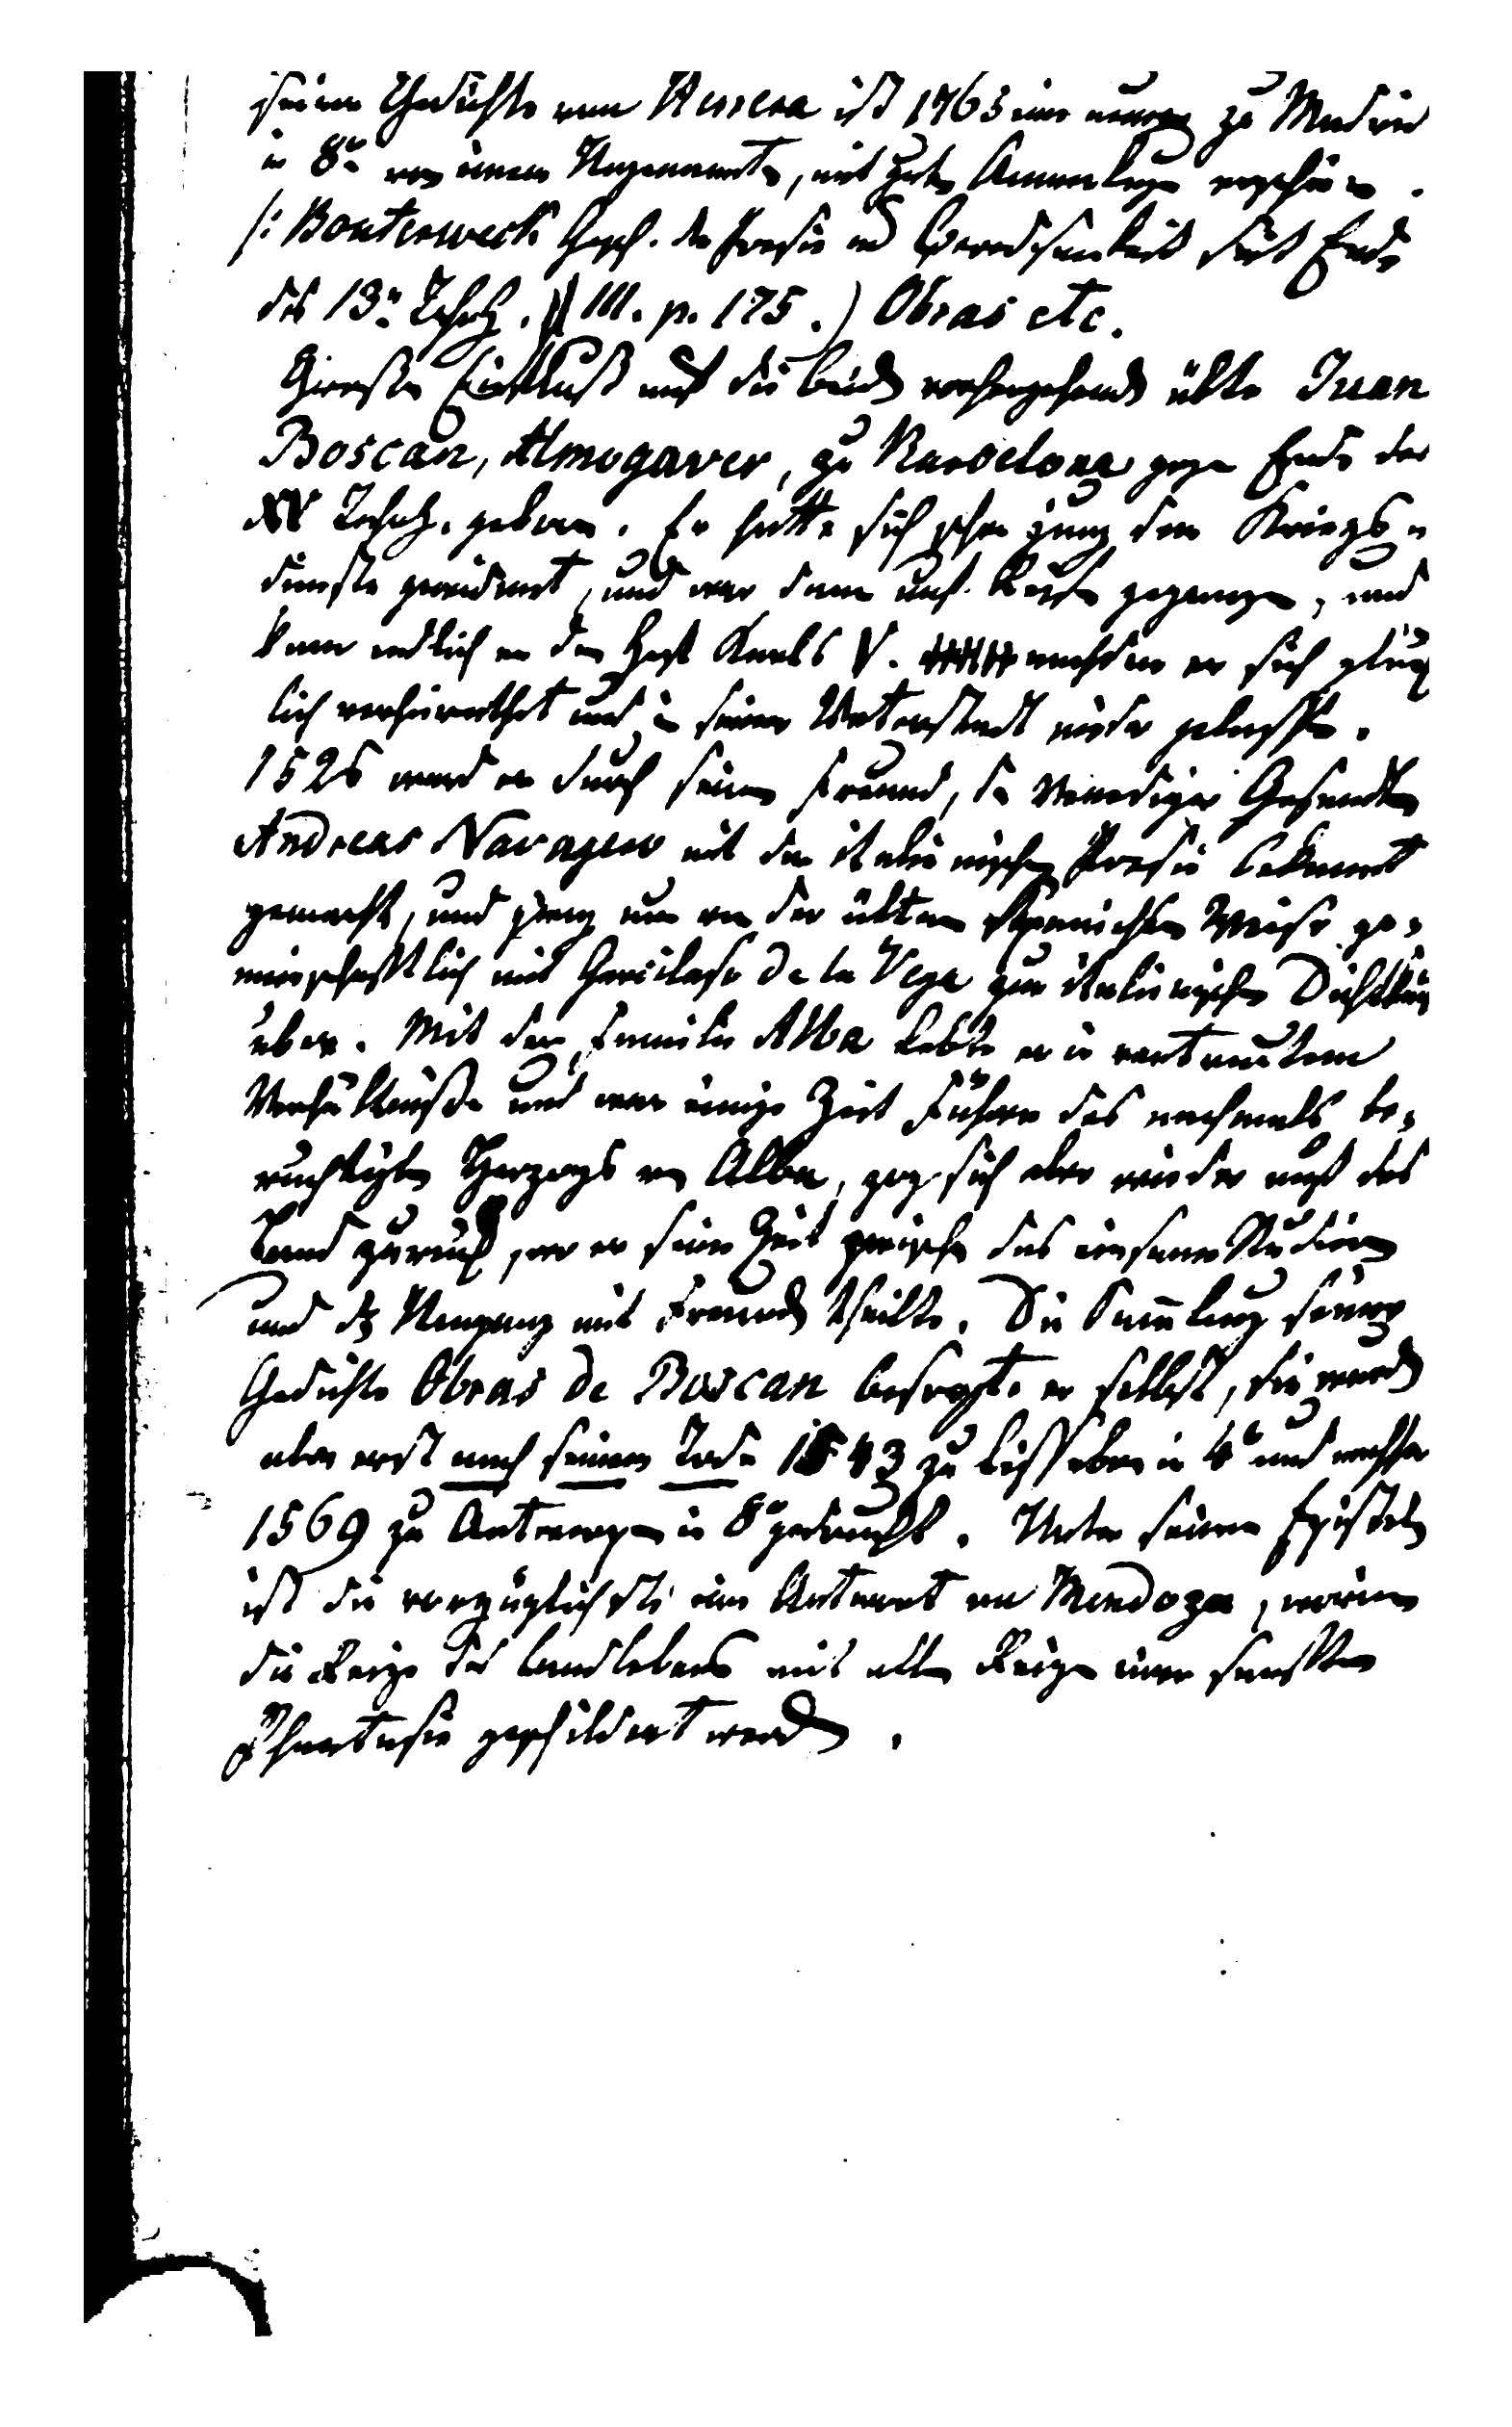 seiner Gedichte von Herrera ist 1765 eine neuere zu Madrid
in 8° von einem Ungenannten, mit guten Anmerkungen erschienen.
/: Bouterweck Gesch. der Poesie und Beredsamkeit seit Ende
des 13n Jahrh. III. p. 175.) Obras etc.
Großen Einfluß auf die beiden vorhergehenden übte Juan
Boscan, Almogaver, zu Barcelona gegen Ende des
XV Jahrh. geboren. Er hatte sich schon jung dem Kriegs-
dienste gewidmet, und war dann auf Reisen gegangen, und
kam endlich an den Hof Karls V. nachdem er sich glück
lich verheirathet und in seiner Vaterstadt nieder gelassen.
1526 ward er durch seinen Freund, den Venediger Gesandten
Andreas Navagero mit der italienischen Poesie bekannt
gemacht, und gieng nun von der ältern spanischen Weise ge-
meinschaftlich mit Garcilaso de la Vega zur italienischen Dichtkunst
über. Mit der Familie Alba lebte er in vertrautem
Verhältniße und war einige Zeit Führer des nachmals be-
rüchtigten Herzogs von Alba, zog sich aber wieder auf das
Land zurück, wo er seine Zeit zwischen das einsame Studium
und den Umgang mit Freunden theilte. Die Sammlung seiner
Gedichte Obras de Boscan besorgte er selbst, sie wurden
aber erst nach seinem Tode 1543 zu Lissabon in 4° und nachher
1569 zu Antwerpen in 8° gedruckt. Unter seinen Episteln
ist die vorzüglichste eine Antwort an Mendoza, worinn
die Reize des Landlebens mit allen Reizen einer sanften
Phantasie geschildert werden.